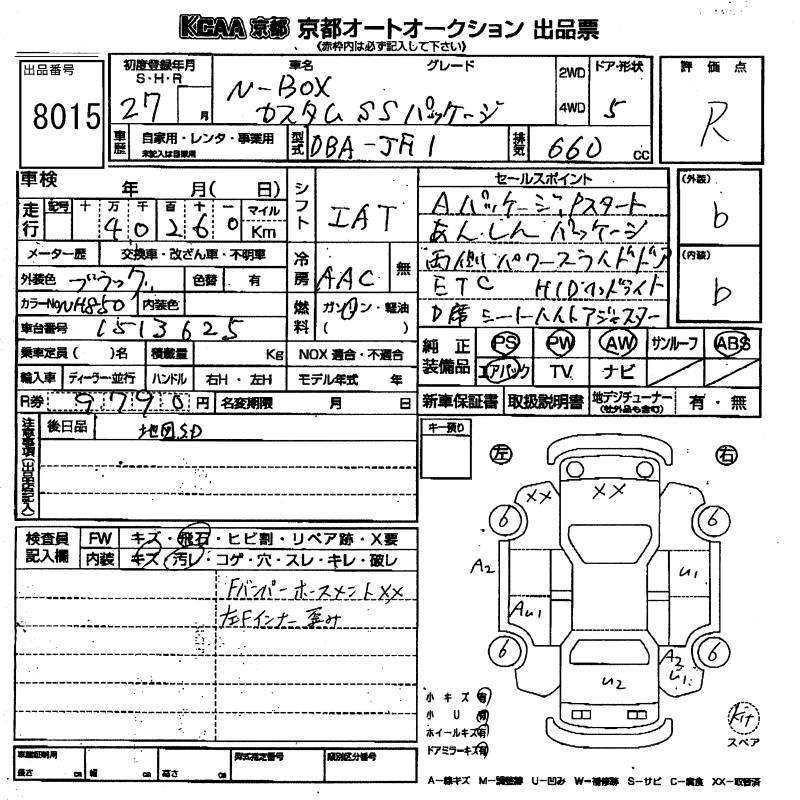 KCAA 京都 京都オートオークション 出品票
《赤枠内は必ず記入して下さい》
出品番号 8015
初度登録年月 S・H・R 27 月
車名 グレード
N-BOX
カスタム SSパッケージ
2WD 4WD
ドア・形状 5
評価点 R
車歴 自家用・レンタ・事業用
未記入は自家用
型式 DBA-JF1
排気 660 cc
車検 年 月( 日)
走行 記号 十 万 千 百 十 一
40260 マイル Km
メーター歴 交換車・改ざん車・不明車
外装色 ブラック 色替 有
カラーNo. NH850 内装色
車台番号 1513625
乗車定員( )名 積載量 Kg NOX適合・不適合
輸入車 ディーラー・並行 ハンドル 右H・左H モデル年式 年
R券 9790 円 名変期限 月 日
シフト IAT
冷房 AAC 無
燃料 ガソリン・軽油
( )
セールスポイント
Aパッケージ, Pスタート
あんしんパッケージ
両側パワースライドドア
ETC HIDヘッドライト
D席シートハイトアジャスター
(外装) b
(内装) b
純正装備品 PS PW AW サンルーフ ABS
エアバック TV ナビ
新車保証書 取扱説明書 地デジチューナー (社外品も含む) 有・無
注意事項(出品店記入)
後日品 地図SD
キー預り
検査員記入欄
FW キズ・飛石・ヒビ割・リペア跡・X要
内装 キズ・汚レ・コゲ・穴・スレ・キレ・破レ
Fバンパーホースメント XX
左Fインナー歪み
左 右
XX XX
6 6
A2 U1
AU1
6 6
A3 U1
U2
小キズ 有
小U 有
ホイールキズ 有
ドアミラーキズ 有
Kit
スペア
車庫証明用 長さ cm 幅 cm 高さ cm
型式指定番号 類別区分番号
A-線キズ M-調整跡 U-凹み W-補修跡 S-サビ C-腐食 XX-取替済